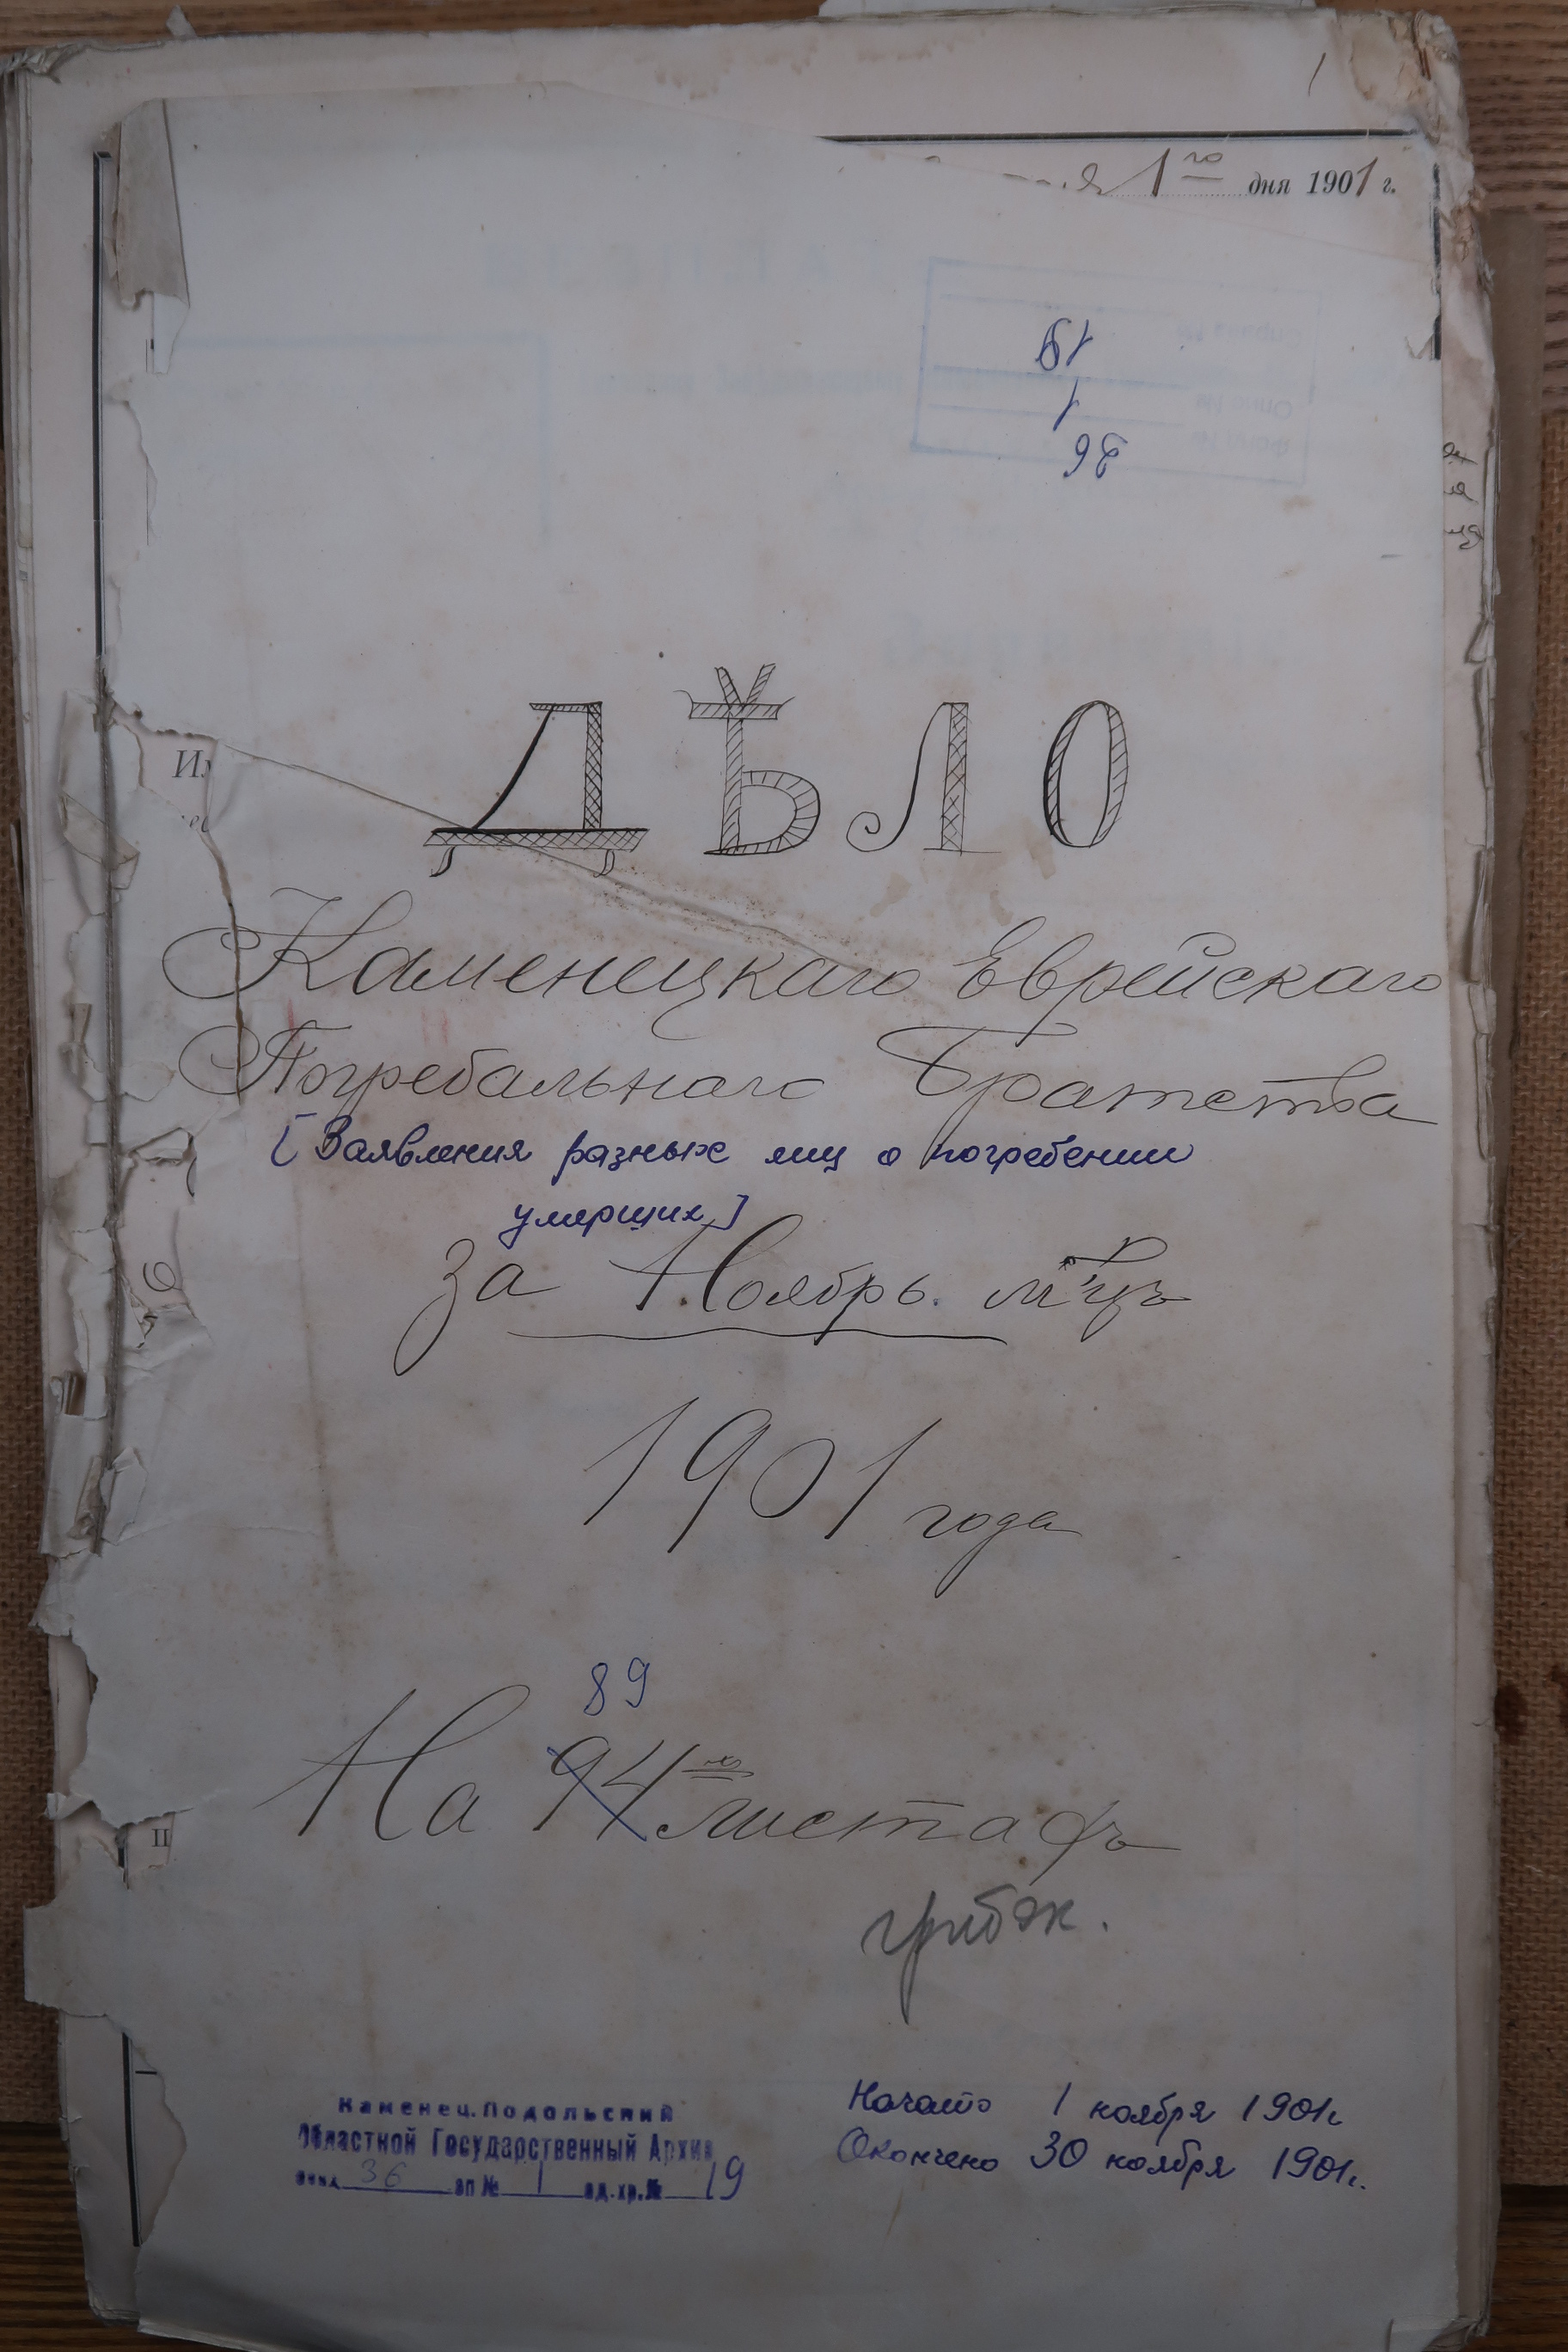 1
1го дня 1901 г.
19
1
36
ДѢЛО
Каменецкаго Еврейскаго
Погребальнаго Братства
[Заявления разных лиц о погребении
умерщих]
за Ноябрь м-цъ
1901 года
89
На 94хъ листахъ
Каменец.Подольский
Областной Государственный Архив
фонд 36 оп № 1 ед.хр.№ 19
Начато 1 ноября 1901г
Окончено 30 ноября 1901г.